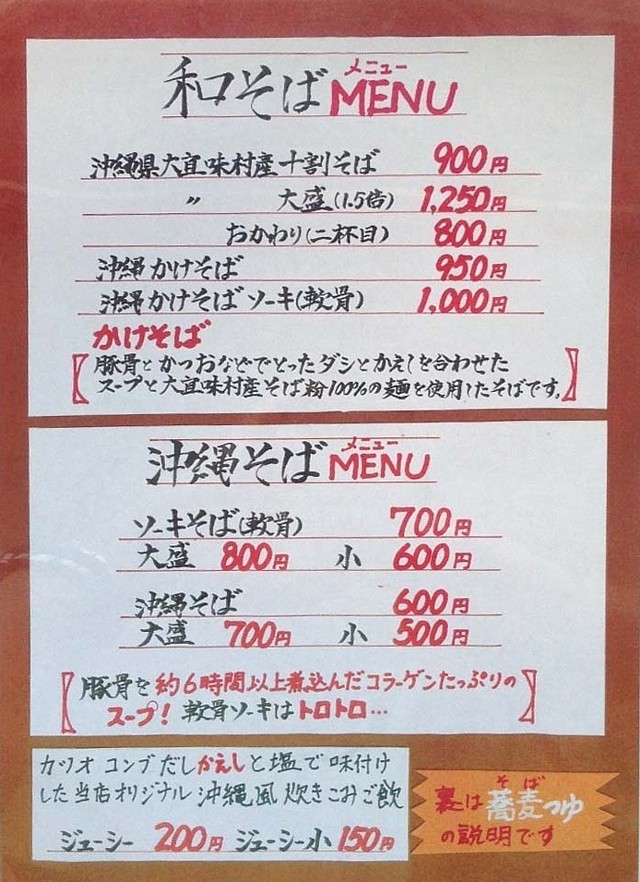 和口そば MENU メニュー
沖縄県大宜味村産十割そば 900円
〃 大盛(1.5倍) 1,250円
おかわり(二杯目) 800円
沖縄かけそば 950円
沖縄かけそばソーキ(軟骨) 1,000円
かけそば
豚骨とかつおなどでとったダシとかえしを合わせた
スープと大宜味村産そば粉100%の麺を使用したそばです。
沖縄そば MENU メニュー
ソーキそば(軟骨) 700円
大盛 800円 小 600円
沖縄そば 600円
大盛 700円 小 500円
豚骨を約6時間以上煮込んだコラーゲンたっぷりの
スープ!軟骨ソーキはトロトロ…
カツオ コンブだしかえしと塩で味付け
した当店オリジナル沖縄風炊きこみご飯
ジューシー 200円 ジューシー小 150円
裏は蕎麦つゆ そば
の説明です